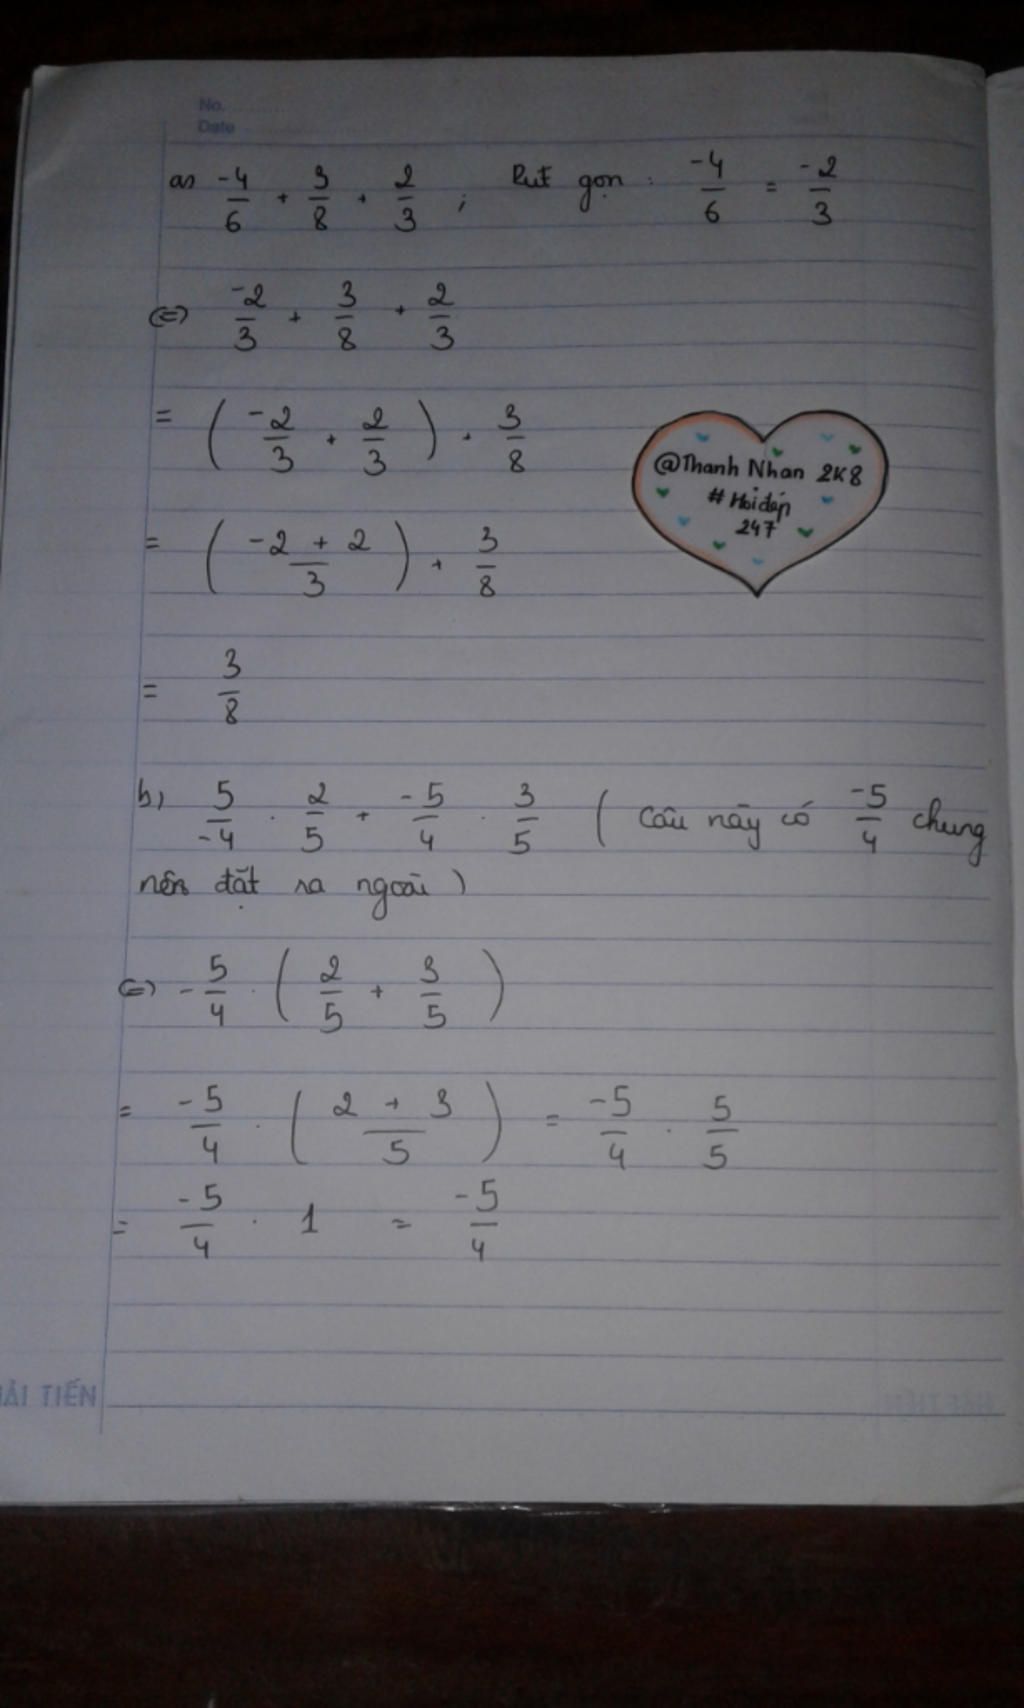 No.
Date
a) -4/6 + 3/8 + 2/3 ; Rut gọn : -4/6 = -2/3
<=> -2/3 + 3/8 + 2/3
= ( -2/3 + 2/3 ) + 3/8
= ( -2 + 2 / 3 ) + 3/8
= 3/8
@Thanh Nhan 2K8
# Hoidap
247
b) 5/-4 . 2/5 + -5/4 . 3/5 ( Câu này có -5/4 chung
nên đặt ra ngoài )
<=> -5/4 . ( 2/5 + 3/5 )
= -5/4 . ( 2 + 3 / 5 ) = -5/4 . 5/5
= -5/4 . 1 = -5/4
ẢI TIẾN